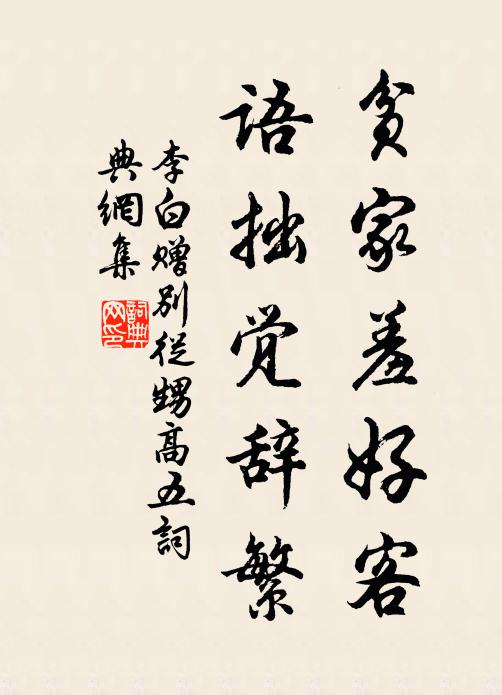 贫家羞好客
语拙觉辞繁
李白赠别从甥高五詞
典網集
詞典
网印